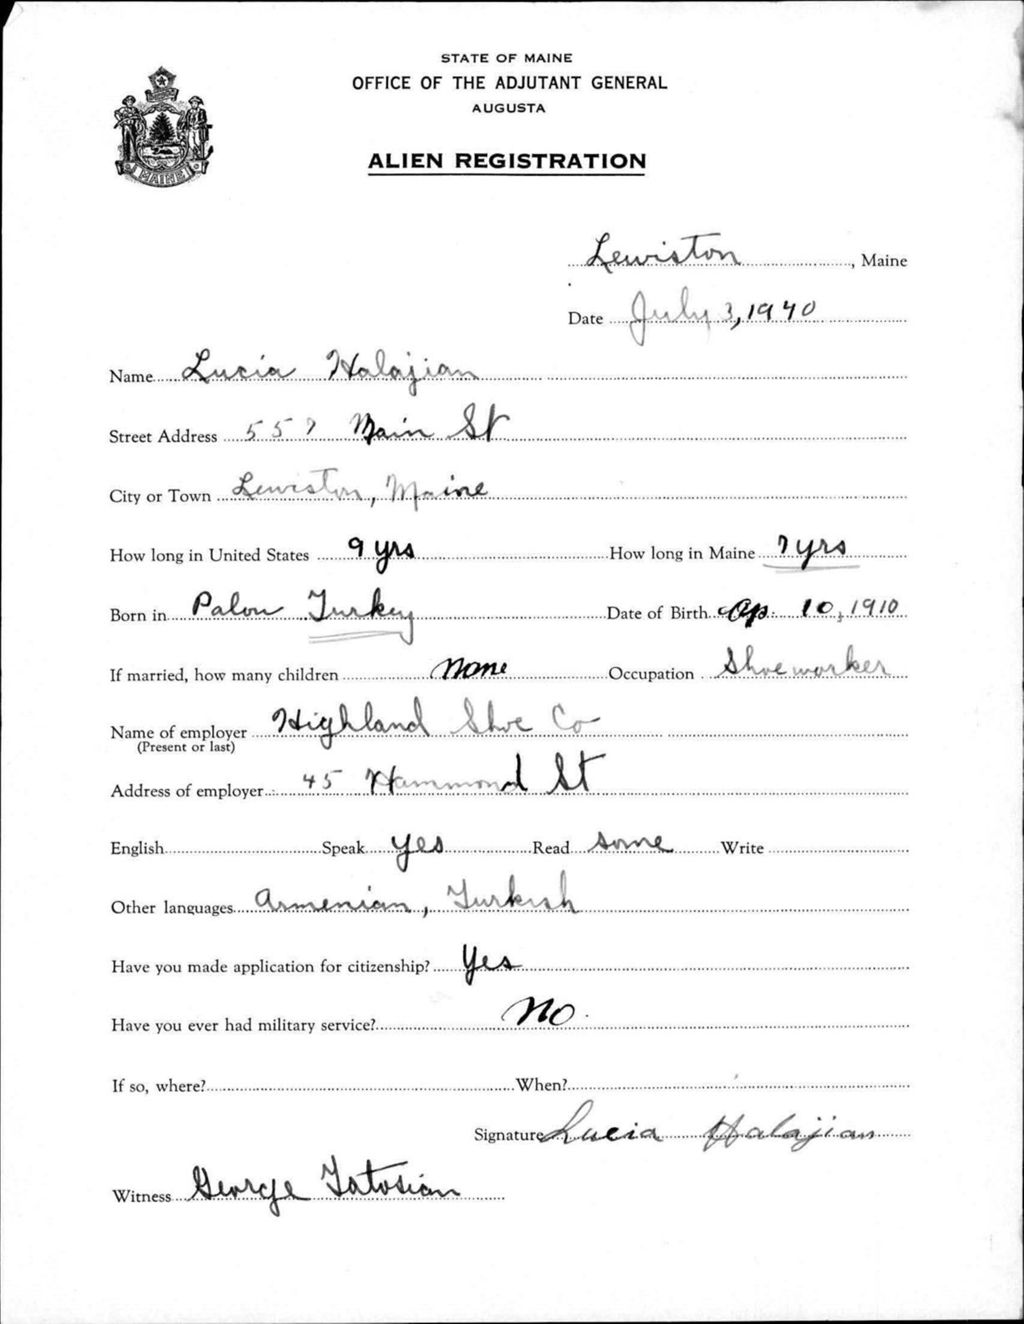 STATE OF MAINE
OFFICE OF THE ADJUTANT GENERAL
AUGUSTA
ALIEN REGISTRATION
MAINE
Lewiston, Maine
Date July 3, 1940
Name Lucia Halajian
Street Address 557 Main St
City or Town Lewiston, Maine
How long in United States 9 yrs How long in Maine 7 yrs
Born in Palou Turkey Date of Birth Ap. 10, 1910
If married, how many children None Occupation Shoe worker
Name of employer Highland Shoe Co
(Present or last)
Address of employer 45 Hammond St
English Speak yes Read some Write
Other languages Armenian, Turkish
Have you made application for citizenship? Yes
Have you ever had military service? No
If so, where? When?
Signature Lucia Halajian
Witness George Tatosian